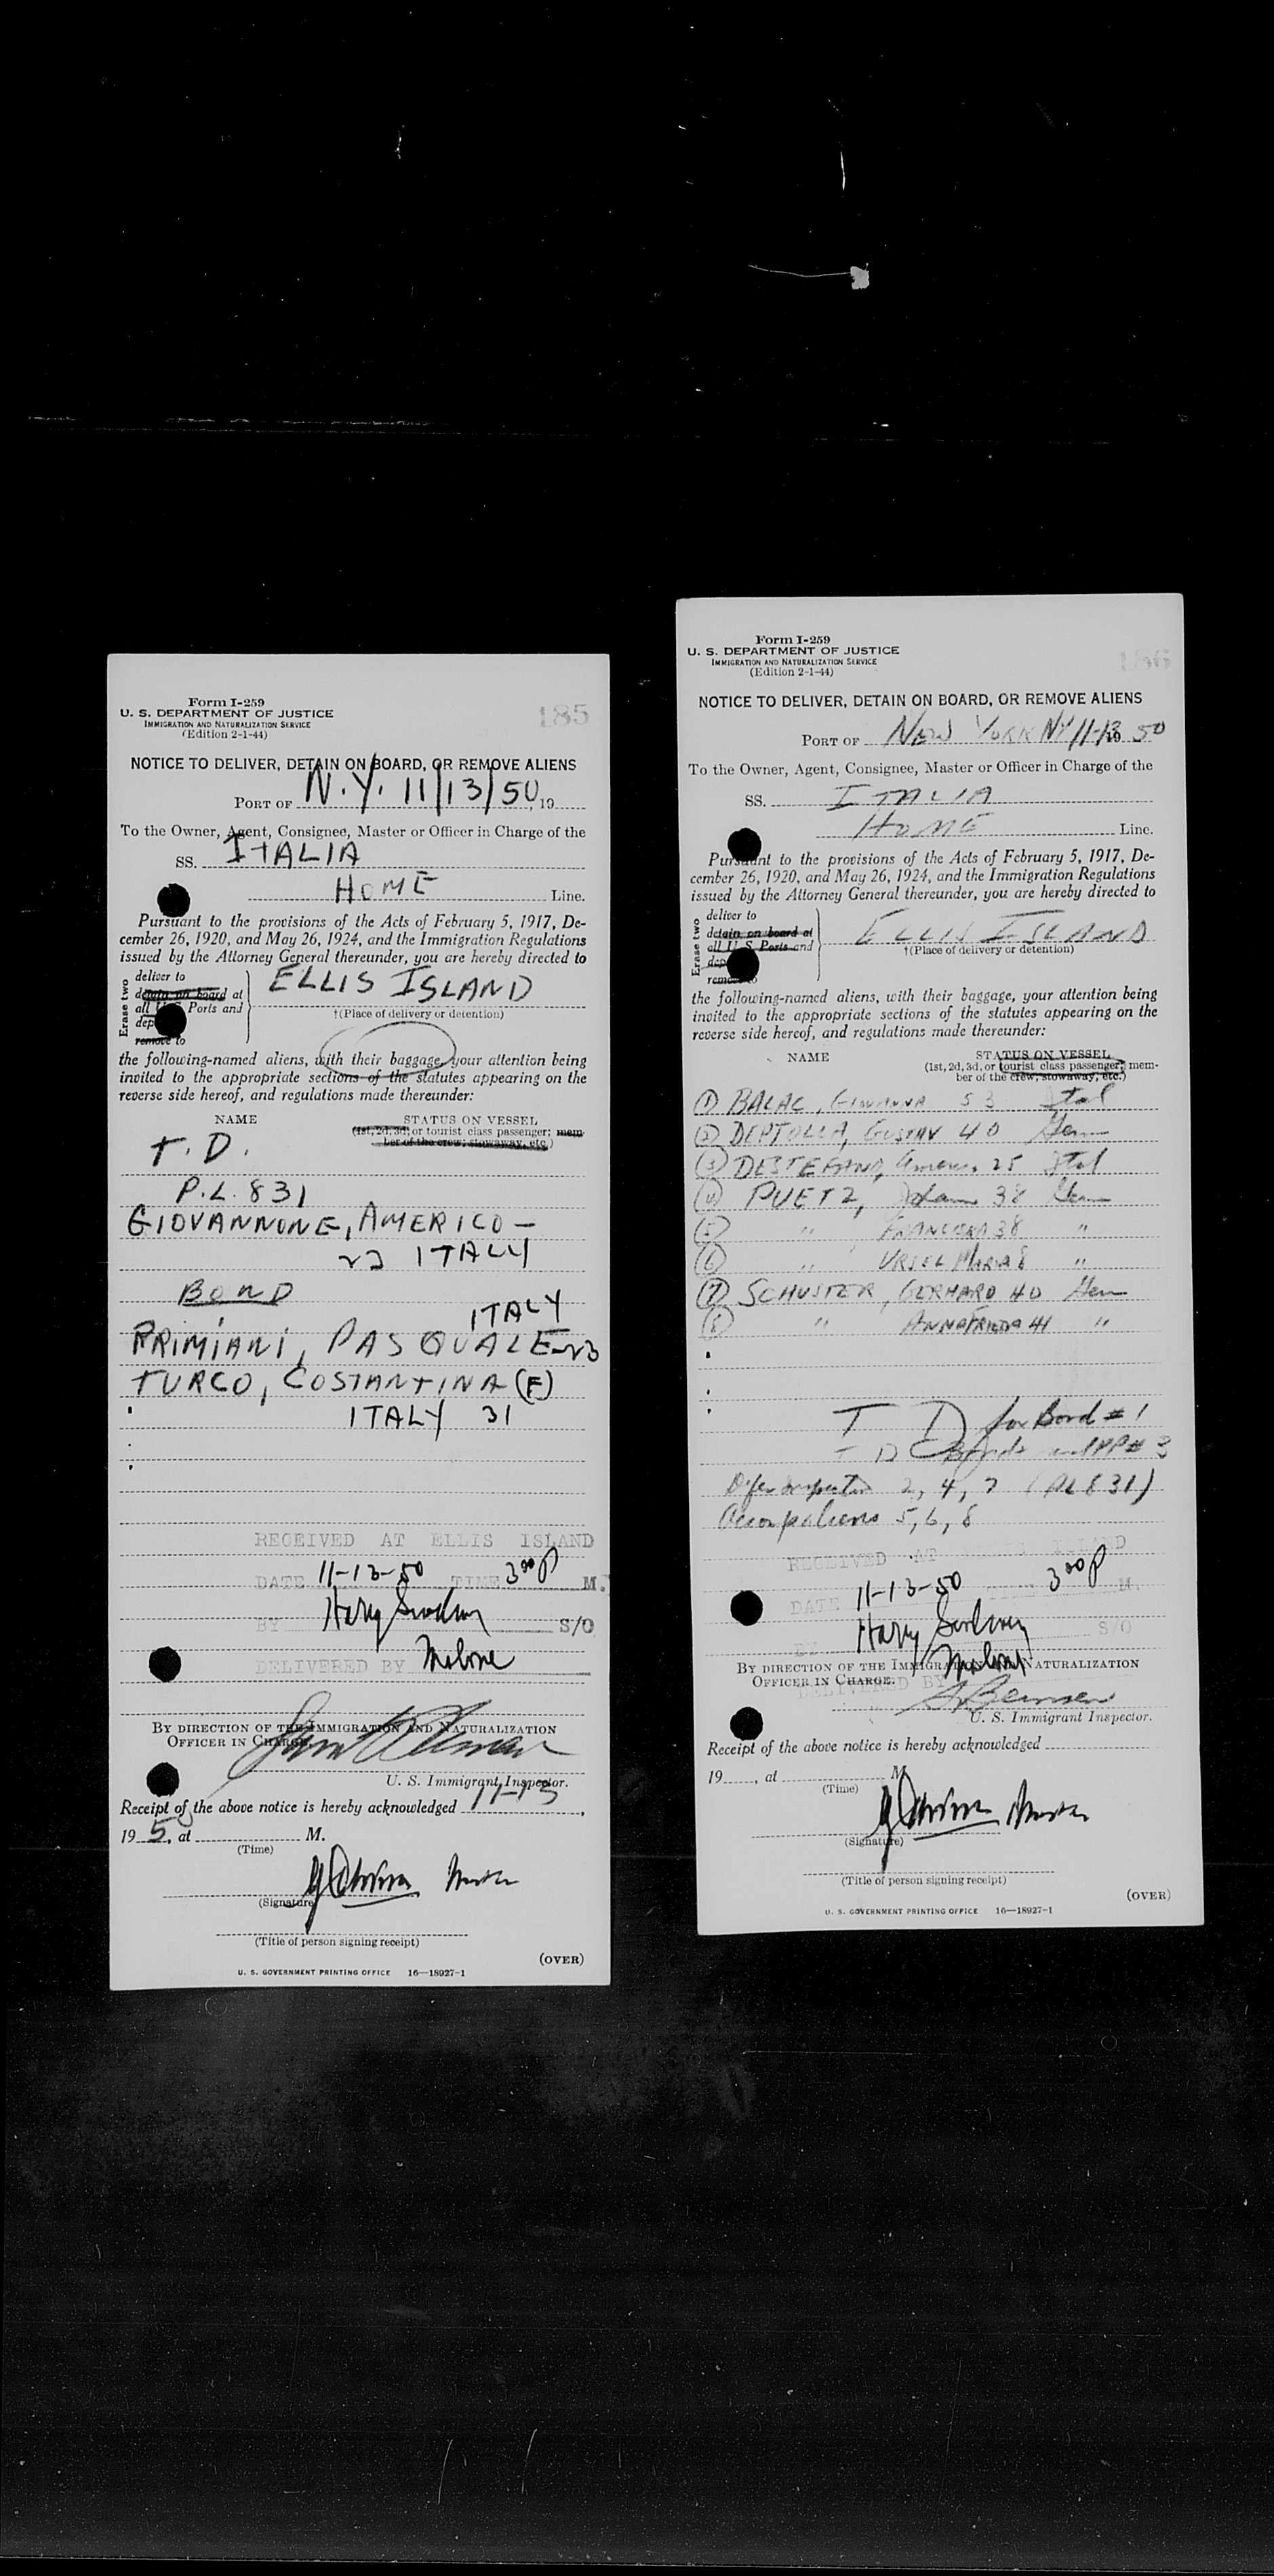 Form I-259
U. S. DEPARTMENT OF JUSTICE
IMMIGRATION AND NATURALIZATION SERVICE
(Edition 2-1-44)
185
NOTICE TO DELIVER, DETAIN ON BOARD, OR REMOVE ALIENS
PORT OF N.Y. 11/13/50, 19
To the Owner, Agent, Consignee, Master or Officer in Charge of the
SS. ITALIA
HOME Line.
Pursuant to the provisions of the Acts of February 5, 1917, De-
cember 26, 1920, and May 26, 1924, and the Immigration Regulations
issued by the Attorney General thereunder, you are hereby directed to
Erase two
deliver to
detain on board at
all U S Ports and
dep
remove to
ELLIS ISLAND
†(Place of delivery or detention)
the following-named aliens, with their baggage, your attention being
invited to the appropriate sections of the statutes appearing on the
reverse side hereof, and regulations made thereunder:
NAME STATUS ON VESSEL
(1st, 2d, 3d, or tourist class passenger; mem-
ber of the crew; stowaway, etc.)
T. D.
P.L. 831
GIOVANNONE, AMERICO -
23 ITALY
BOND
ITALY
PRIMIANI, PASQUALE-23
TURCO, COSTANTINA (F)
ITALY 31
RECEIVED AT ELLIS ISLAND
DATE 11-13-50 TIME 3 00 P M.
BY Harry S/O
DELIVERED BY Malone
BY DIRECTION OF THE IMMIGRATION AND NATURALIZATION
OFFICER IN CHARGE.
U. S. Immigrant Inspector.
Receipt of the above notice is hereby acknowledged 11-13,
19 5, at M.
(Time)
(Signature)
(Title of person signing receipt)
(OVER)
U. S. GOVERNMENT PRINTING OFFICE 16—18927-1
Form I-259
U. S. DEPARTMENT OF JUSTICE
IMMIGRATION AND NATURALIZATION SERVICE
(Edition 2-1-44)
186
NOTICE TO DELIVER, DETAIN ON BOARD, OR REMOVE ALIENS
PORT OF NEW YORK NY 11-13 19 50
To the Owner, Agent, Consignee, Master or Officer in Charge of the
SS. ITALIA
HOME Line.
Pursuant to the provisions of the Acts of February 5, 1917, De-
cember 26, 1920, and May 26, 1924, and the Immigration Regulations
issued by the Attorney General thereunder, you are hereby directed to
Erase two
deliver to
detain on board at
all U S Ports and
dep
remove to
ELLIS ISLAND
†(Place of delivery or detention)
the following-named aliens, with their baggage, your attention being
invited to the appropriate sections of the statutes appearing on the
reverse side hereof, and regulations made thereunder:
NAME STATUS ON VESSEL
(1st, 2d, 3d, or tourist class passenger; mem-
ber of the crew; stowaway, etc.)
① BALAC, GIOVANNA 53 Ital
② DEPTOLLA, GUSTAV 40 Ger
③ DESTEFANO, 25 Ital
④ PUETZ, 38 Ger
⑤ " FRANCISKA 38 "
⑥ " URSEL MARIA 8 "
⑦ SCHUSTER, GERHARD 40 Ger
⑧ " ANNA FRIEDA 41 "
T D for Bond # 1
T D # 3
2, 4, 7 (PL 831)
5, 6, 8
RECEIVED AT ISLAND
DATE 11-13-50 TIME 3 00 P M.
BY Harry S/O
DELIVERED BY Malone
BY DIRECTION OF THE IMMIGRATION AND NATURALIZATION
OFFICER IN CHARGE.
U. S. Immigrant Inspector.
Receipt of the above notice is hereby acknowledged
19 , at M.
(Time)
(Signature)
(Title of person signing receipt)
(OVER)
U. S. GOVERNMENT PRINTING OFFICE 16—18927-1